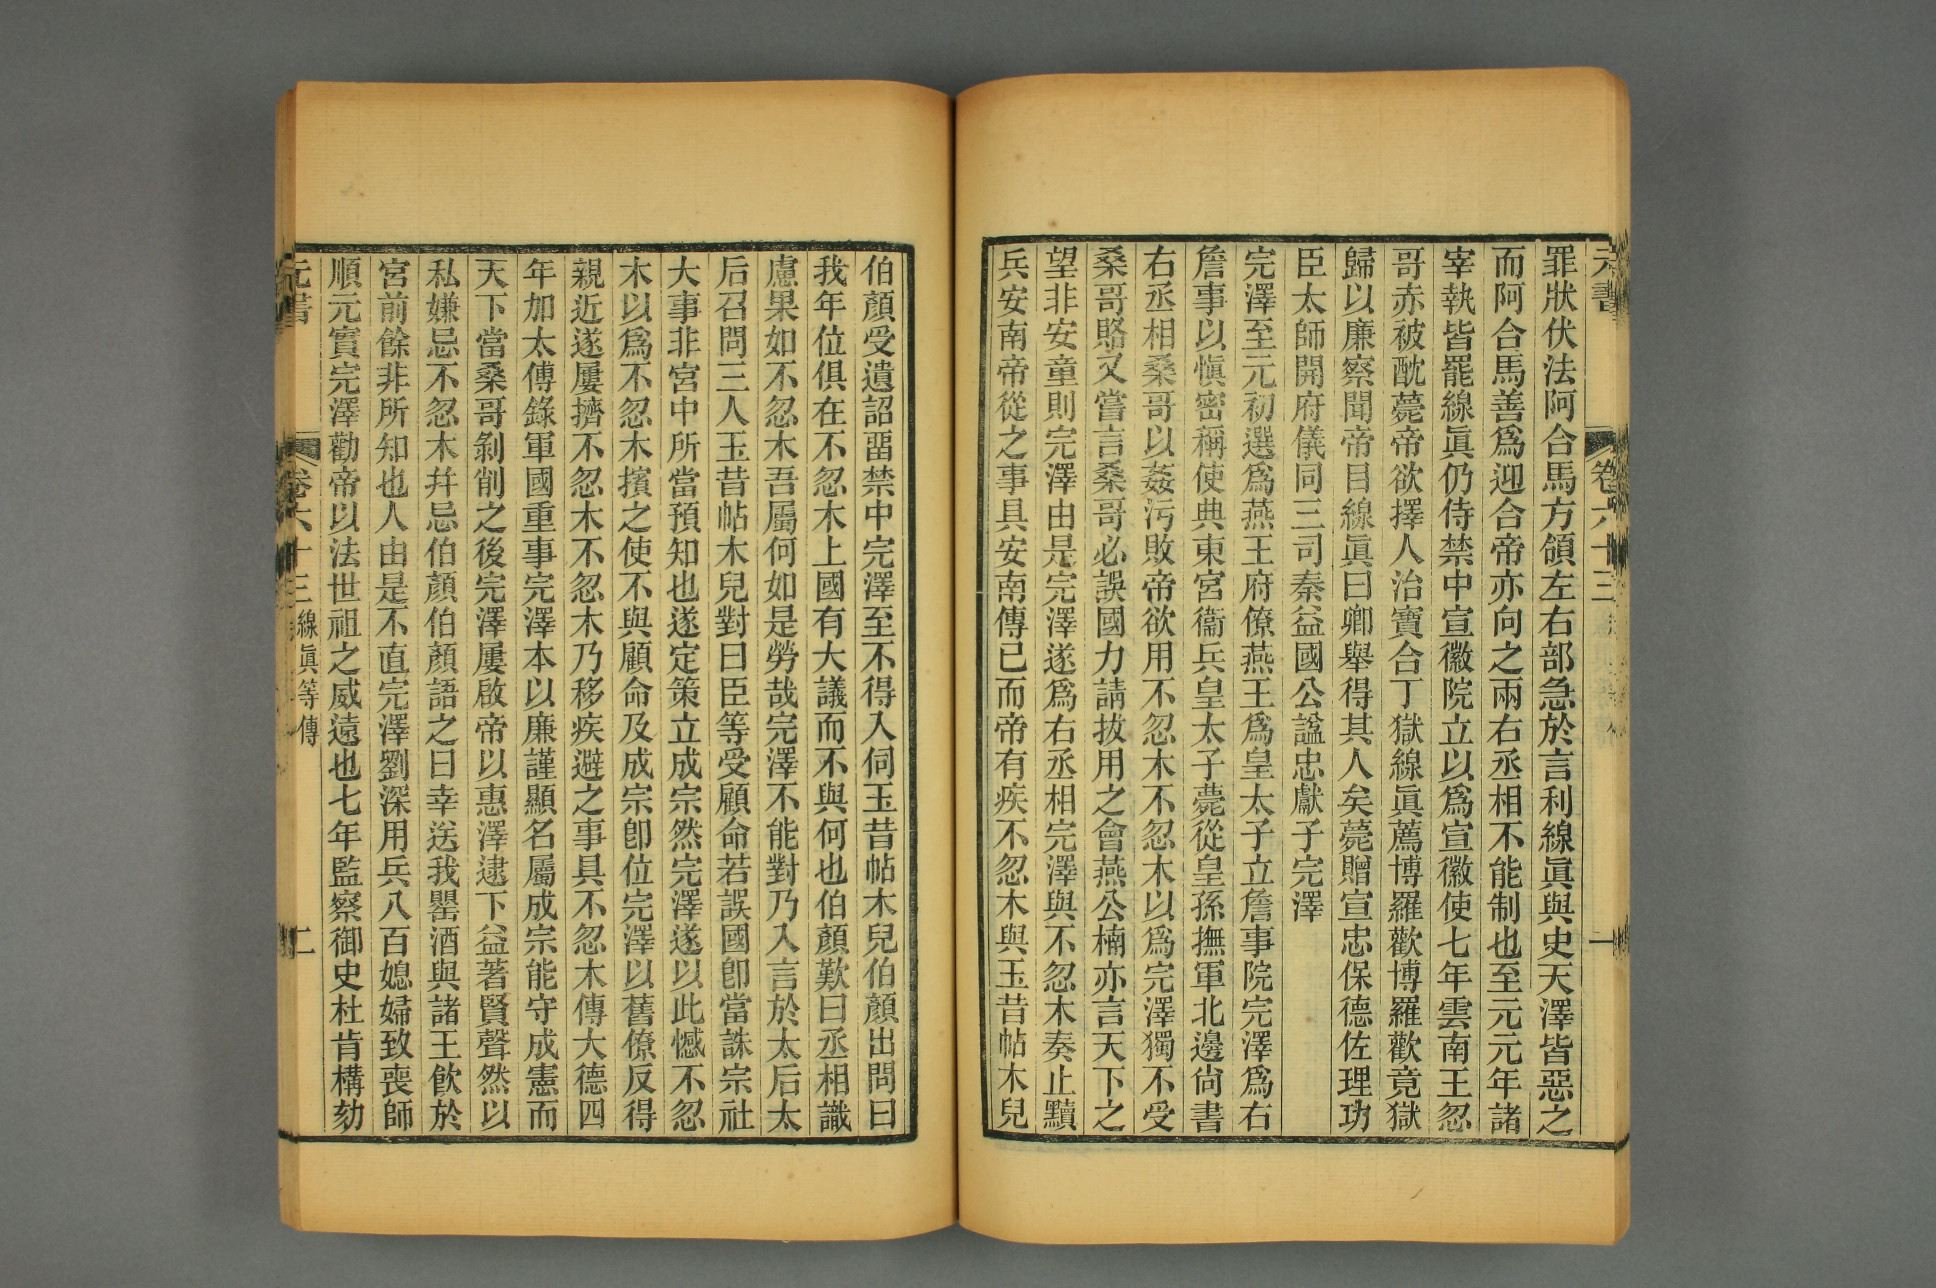 元書
卷六十三
一
罪狀伏法阿合馬方領左右部急於言利線眞與史天澤皆惡之
而阿合馬善爲迎合帝亦向之兩右丞相不能制也至元元年諸
宰執皆罷線眞仍侍禁中宣徽院立以爲宣徽使七年雲南王忽
哥赤被酖薨帝欲擇人治寶合丁獄線眞薦博羅歡博羅歡竟獄
歸以廉察聞帝目線眞曰卿舉得其人矣薨贈宣忠保德佐理功
臣太師開府儀同三司秦益國公諡忠獻子完澤
完澤至元初選爲燕王府僚燕王爲皇太子立詹事院完澤爲右
詹事以愼密稱使典東宮衞兵皇太子薨從皇孫撫軍北邊尙書
右丞相桑哥以姦污敗帝欲用不忽木不忽木以爲完澤獨不受
桑哥賂又嘗言桑哥必誤國力請拔用之會燕公楠亦言天下之
望非安童則完澤由是完澤遂爲右丞相完澤與不忽木奏止黷
兵安南帝從之事具安南傳已而帝有疾不忽木與玉昔帖木兒
伯顏受遺詔畱禁中完澤至不得入伺玉昔帖木兒伯顏出問曰
我年位俱在不忽木上國有大議而不與何也伯顏歎曰丞相識
慮果如不忽木吾屬何如是勞哉完澤不能對乃入言於太后太
后召問三人玉昔帖木兒對曰臣等受顧命若誤國卽當誅宗社
大事非宮中所當預知也遂定策立成宗然完澤遂以此憾不忽
木以爲不忽木擯之使不與顧命及成宗卽位完澤以舊僚反得
親近遂屢擠不忽木不忽木乃移疾避之事具不忽木傳大德四
年加太傅錄軍國重事完澤本以廉謹顯名屬成宗能守成憲而
天下當桑哥剝削之後完澤屢啟帝以惠澤逮下益著賢聲然以
私嫌忌不忽木幷忌伯顏伯顏語之曰幸送我罌酒與諸王飮於
宮前餘非所知也人由是不直完澤劉深用兵八百媳婦致喪師
順元實完澤勸帝以法世祖之威遠也七年監察御史杜肯構劾
元書
卷六十三
線眞等傳
二